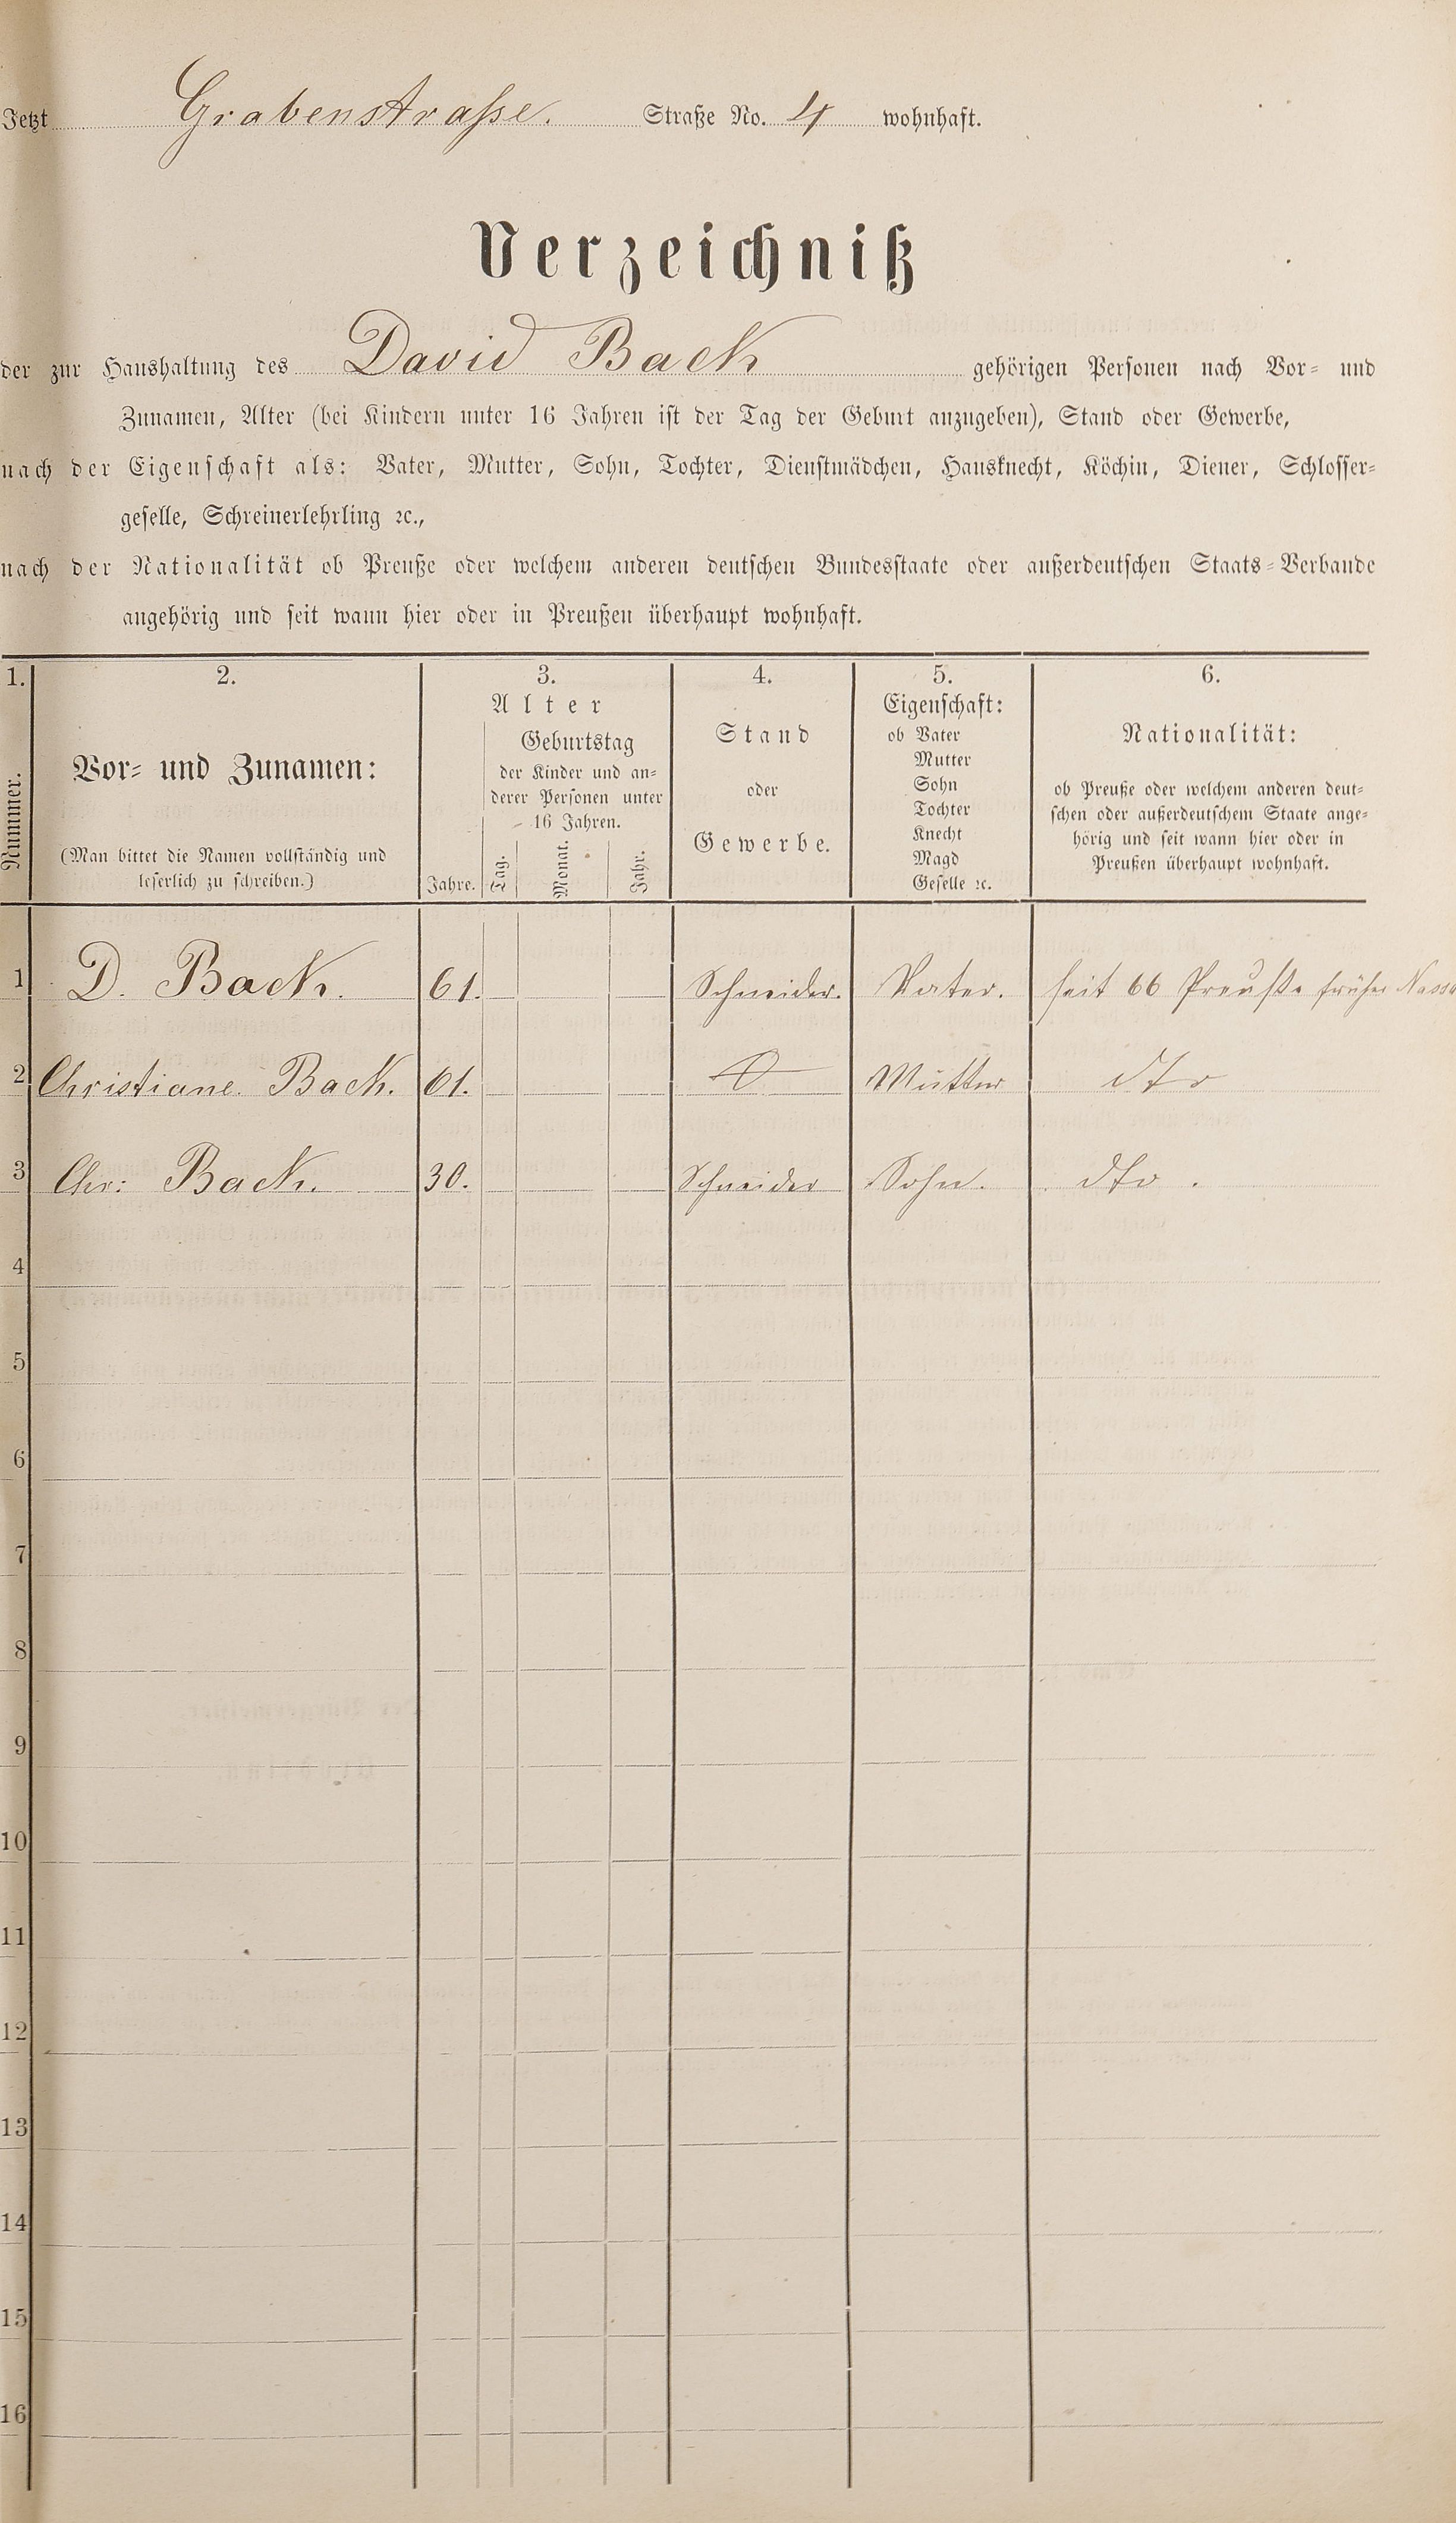 Jetzt Grabenstraße. Straße No. 4 wohnhaft.
Verzeichniß
der zur Haushaltung des David Back gehörigen Personen nach Vor- und
Zunamen, Alter (bei Kindern unter 16 Jahren ist der Tag der Geburt anzugeben), Stand oder Gewerbe,
nach der Eigenschaft als: Vater, Mutter, Sohn, Tochter, Dienstmädchen, Hausknecht, Köchin, Diener, Schlosser-
geselle, Schreinerlehrling ꝛc.,
nach der Nationalität ob Preuße oder welchem anderen deutschen Bundesstaate oder außerdeutschen Staats-Verbande
angehörig und seit wann hier oder in Preußen überhaupt wohnhaft.
1. 2. 3. 4. 5. 6.
Nummer.
Vor- und Zunamen:
(Man bittet die Namen vollständig und
leserlich zu schreiben.)
Alter
Jahre.
Geburtstag
der Kinder und an-
derer Personen unter
16 Jahren.
Tag. Monat. Jahr.
Stand
oder
Gewerbe.
Eigenschaft:
ob Vater
Mutter
Sohn
Tochter
Knecht
Magd
Geselle ꝛc.
Nationalität:
ob Preuße oder welchem anderen deut-
schen oder außerdeutschem Staate ange-
hörig und seit wann hier oder in
Preußen überhaupt wohnhaft.
1 D. Back. 61. Schneider. Vater. seit 66 Preuße früher
2 Christiane Back. 61. Mutter dto
3 Chr: Back. 30. Schneider Sohn. dto.
4
5
6
7
8
9
10
11
12
13
14
15
16